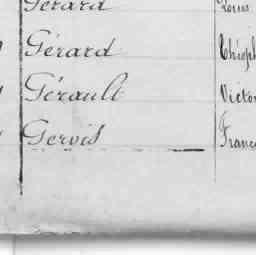 Gérard Louis
Gérard Théoph
Gérault Victor
Gervis Franç